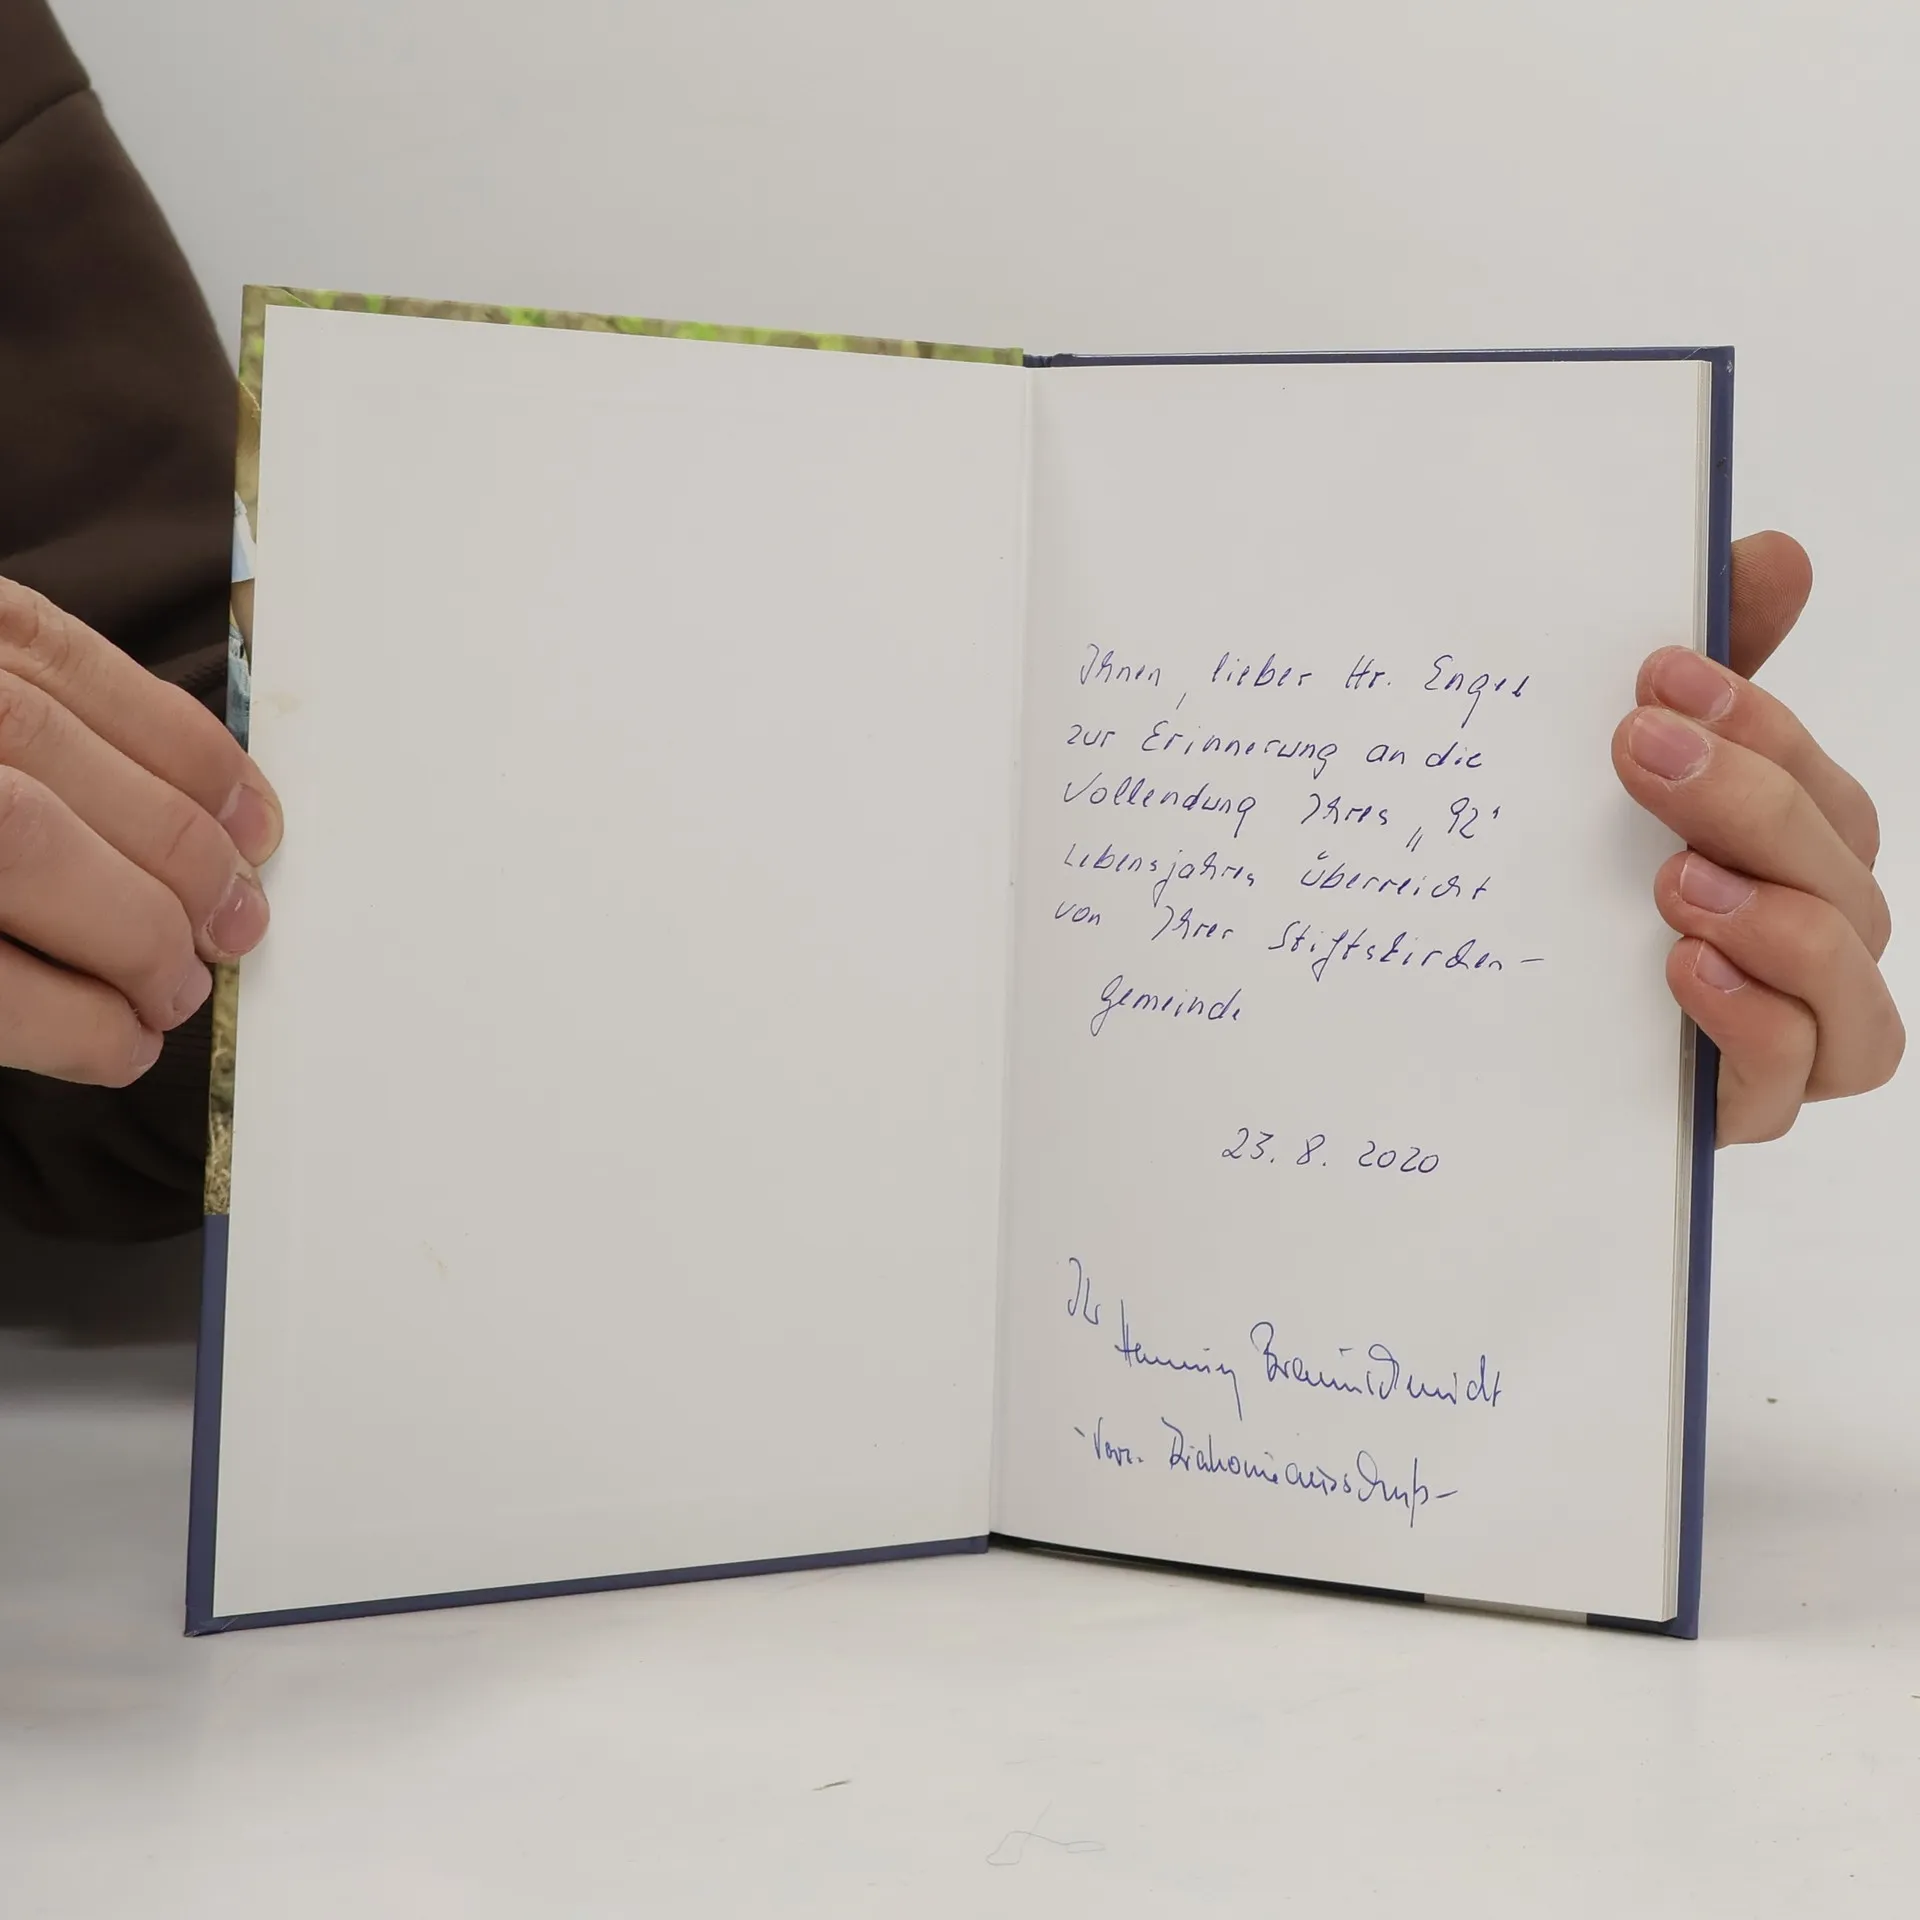 Ihnen, lieber Hr. Engel
zur Erinnerung an die
Vollendung Ihres „92‟
Lebensjahres überreicht
von Ihrer Stiftskirchen-
gemeinde
23. 8. 2020
Ihr
Henning Braunschmidt
Vors. Diakonieausschuß